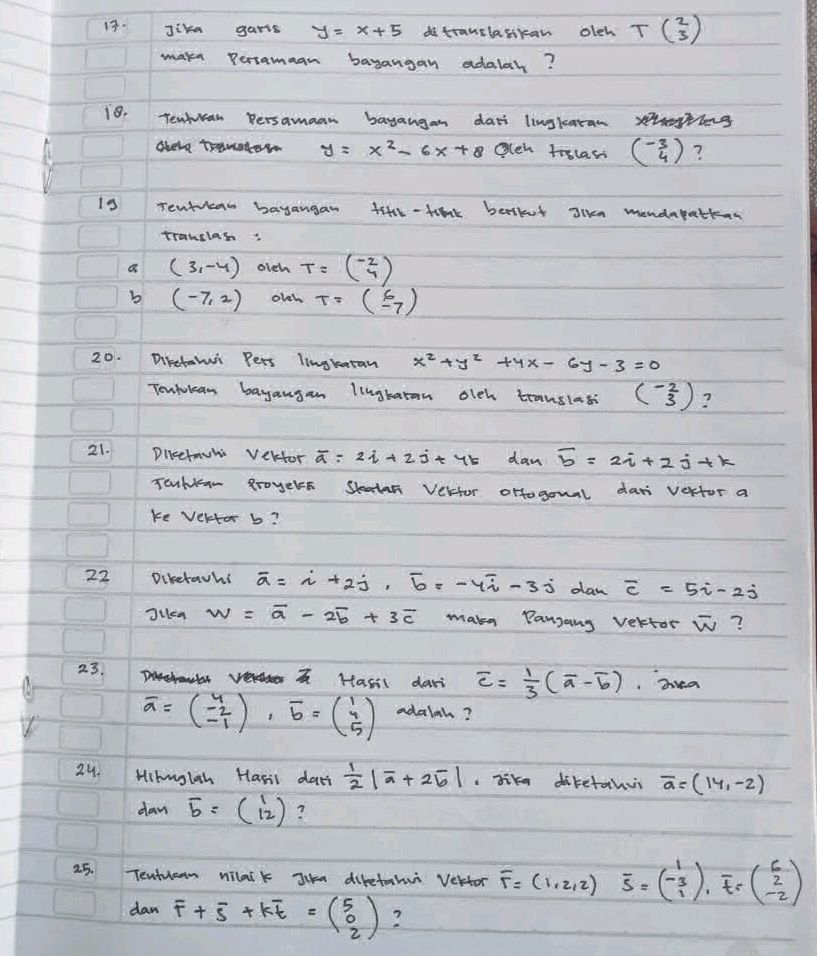 17. Jika garis y = x + 5 ditranslasikan oleh T (2 3)
maka Persamaan bayangan adalah ?
18. Tentukan Persamaan bayangan dari lingkaran
y = x² - 6x + 8 Oleh trslasi (-3 4) ?
19 Tentukan bayangan titik - titik berikut Jika mendapatkan
translasi :
a (3,-4) oleh T = (-2 4)
b (-7, 2) oleh T = (6 -7)
20. Diketahui Pers lingkaran x² + y² + 4x - 6y - 3 = 0
Tentukan bayangan lingkaran oleh translasi (-2 3) ?
21. Diketauhi Vektor a = 2i + 2j + 4k dan b = 2i + 2j + k
Tentukan Proyeksi Vektor ortogonal dari Vektor a
ke Vektor b ?
22 Diketauhi a = i + 2j , b = -4i - 3j dan c = 5i - 2j
Jika w = a - 2b + 3c maka Panjang Vektor w ?
23. Hasil dari c = 1/3 (a - b) . Jika
a = (4 -2 -1) , b = (1 4 5) adalah ?
24. Hitunglah Hasil dari 1/2 |a + 2b| . Jika diketahui a = (14, -2)
dan b = (1 12) ?
25. Tentukan nilai k Jika diketahui Vektor r = (1,2,2) s = (1 -3 1), t = (6 2 -2)
dan r + s + kt = (5 0 2) ?